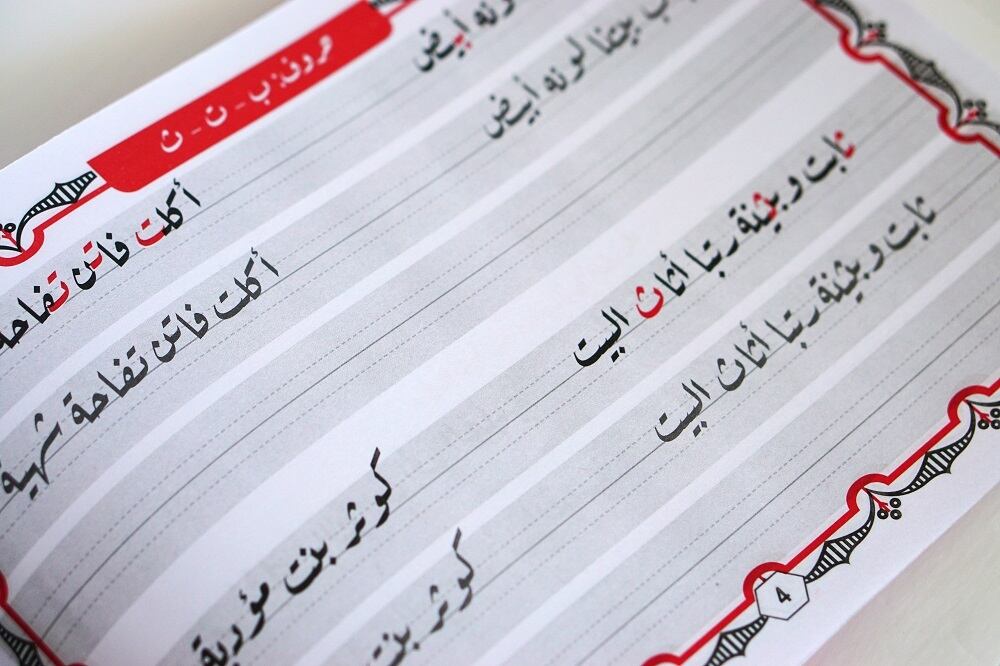 حروف: ب - ت - ث
لونه أبيض
بيتنا لونه أبيض
أكلت فاتن تفاحة
أكلت فاتن تفاحة شهية
ثابت وبثينة رتبا أثاث البيت
ثابت وبثينة رتبا أثاث البيت
كوثر بنت مؤدبة
كوثر بنت
4